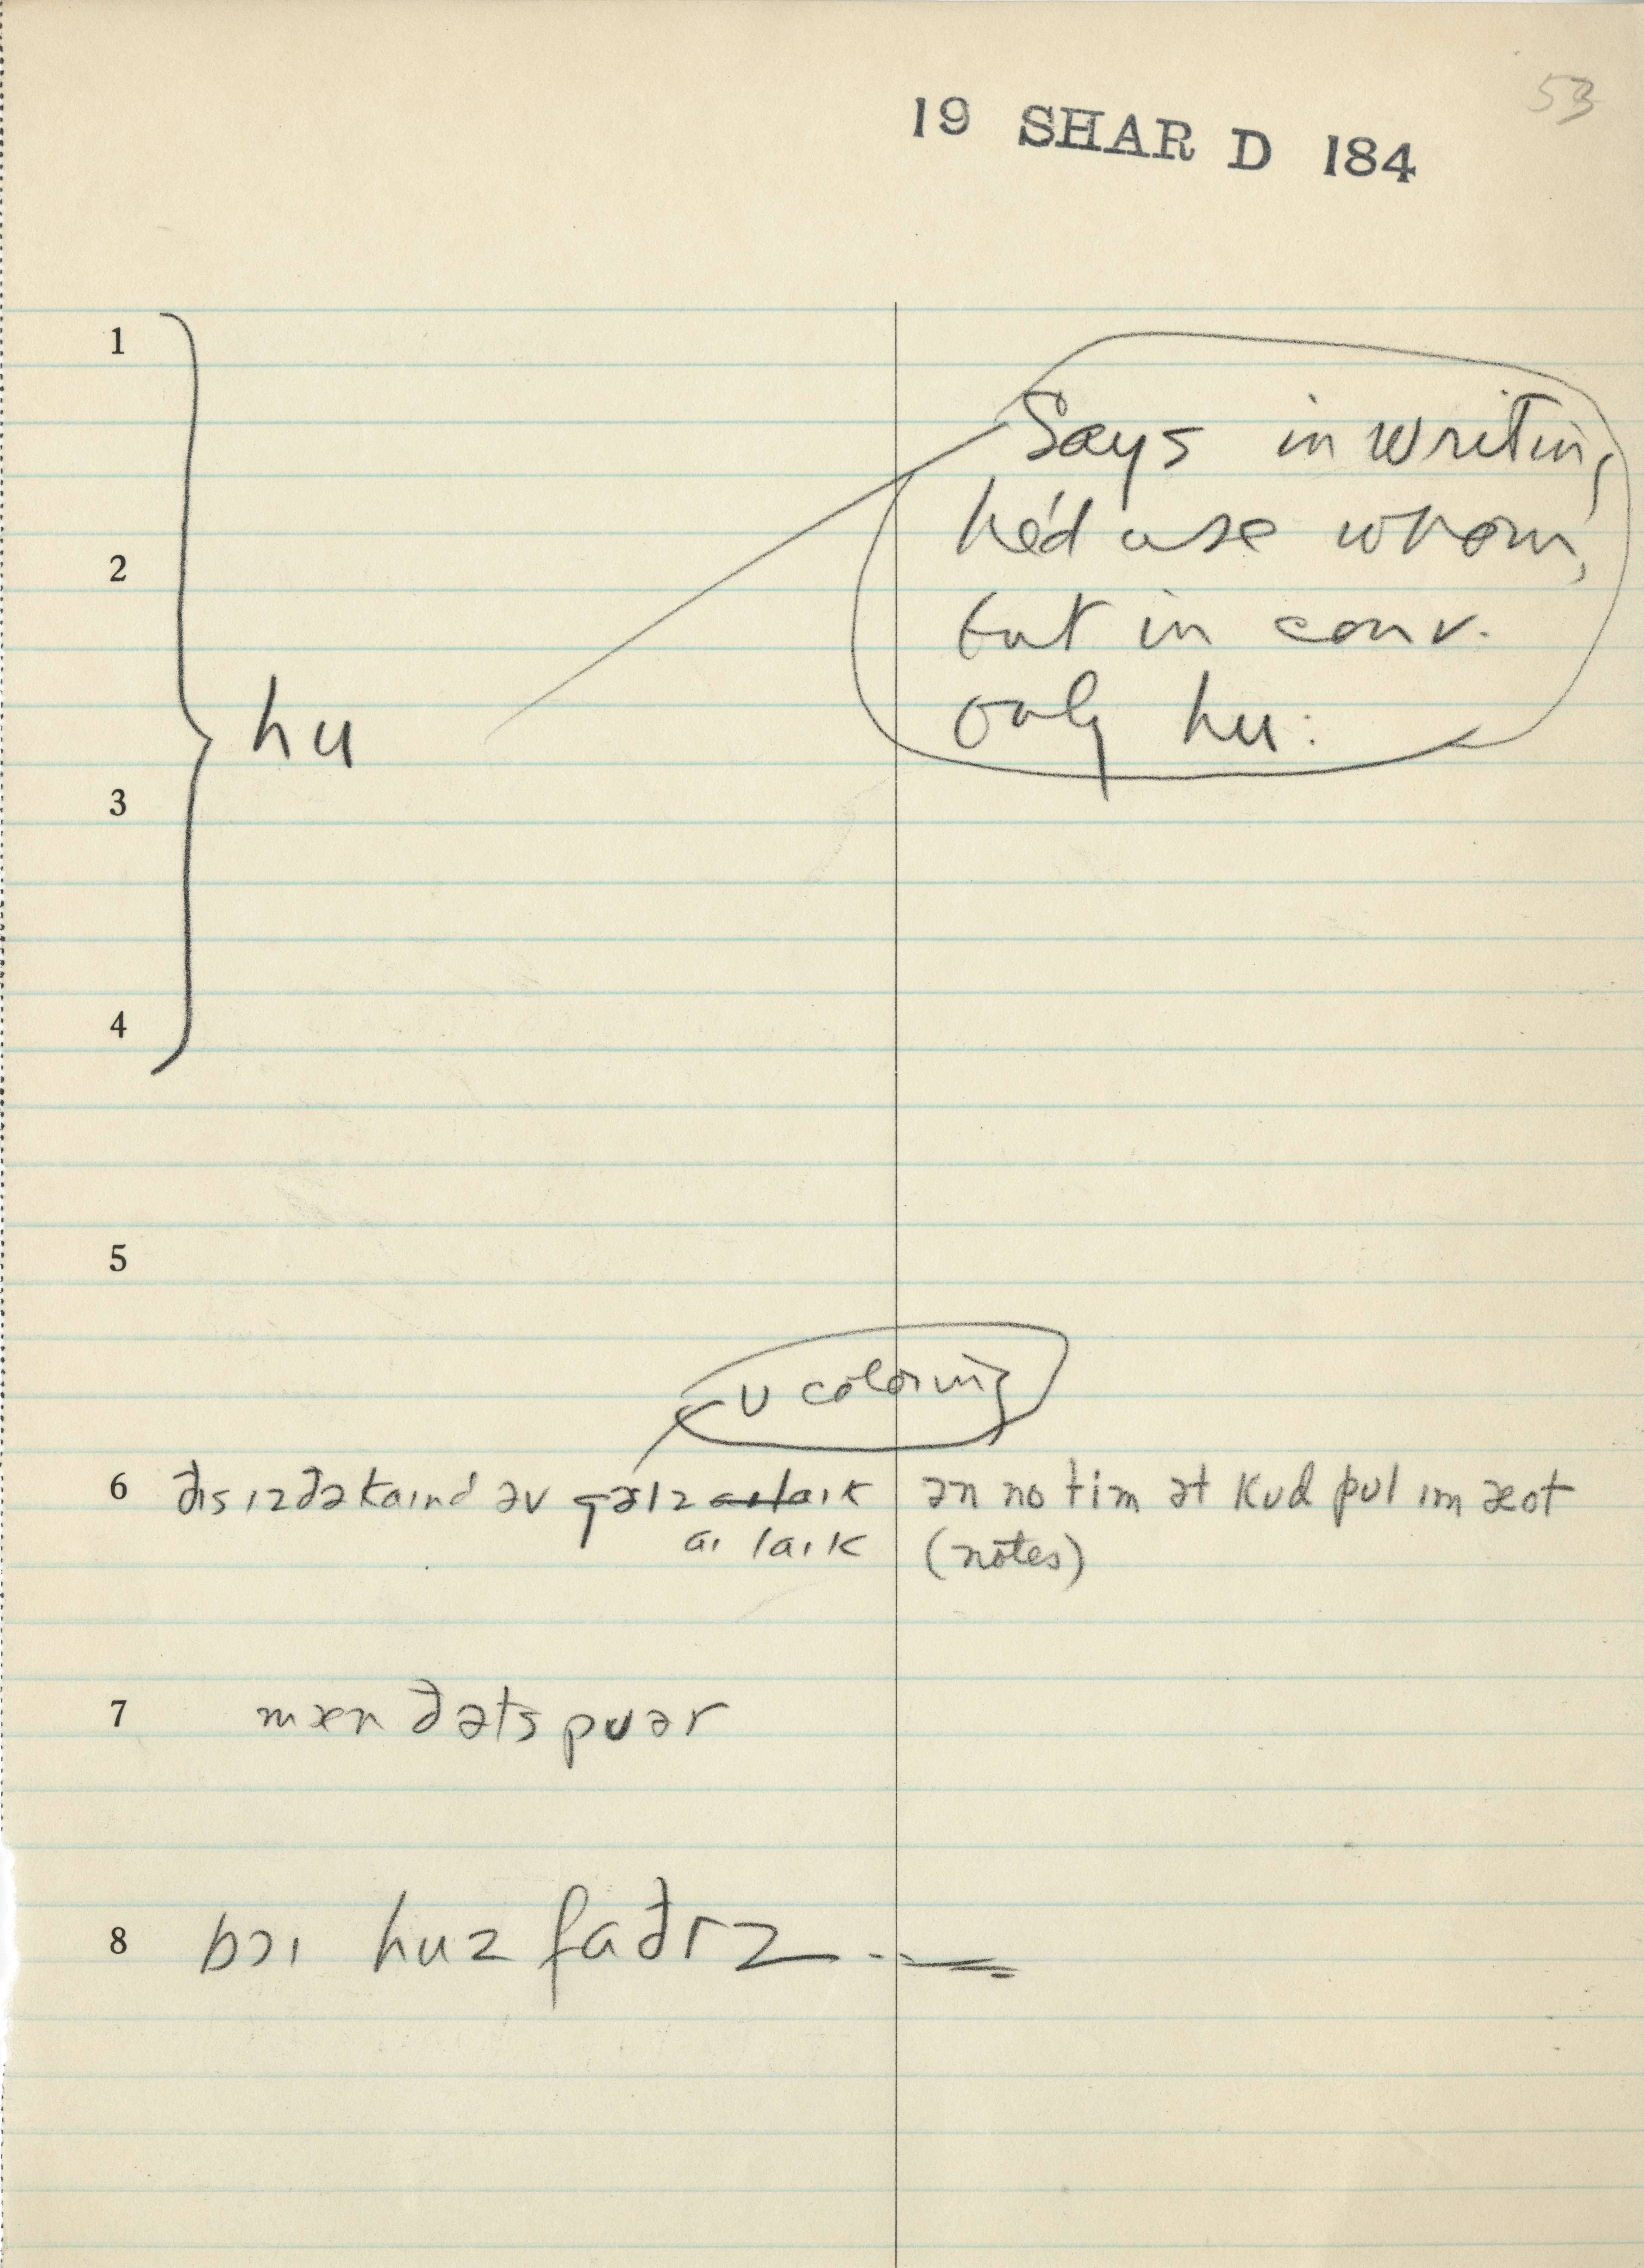 53
19 SHAR D 184
1
Says in writing
he'd use whom,
but in conv.
2
hu
only hu:
3
4
5
ʊ coloring
6 ðɪs ɪz ðə kaɪnd əv gəlz aɪ laɪk ən no tim ət kʊd pʊl ɪm æot
aɪ laɪk (notes)
7 mæn ðəts pʊər
8 bɔɪ huz faðrz